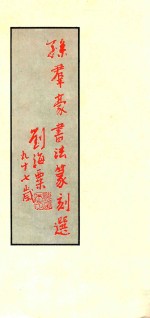 孫羣豪書法篆刻選
劉海粟
九十七歲